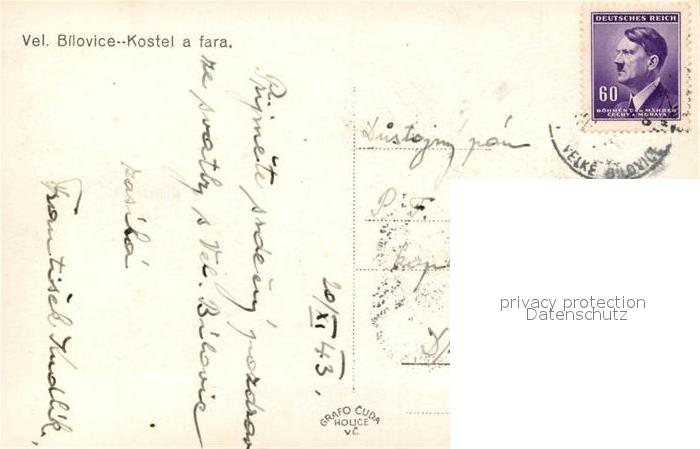 Vel. Bílovice--Kostel a fara.
Přijměte srdečný pozdrav
ze svatby s Vel. Bílovic
zasílá
František Kudlík,
20/XI 43.
GRAFO ČUDA
HOLICE
V Č.
DEUTSCHES REICH
60
BÖHMEN u. MÄHREN
ČECHY a MORAVA
VELKÉ BÍLOVICE
Důstojný pán
P. T.
privacy protection
Datenschutz